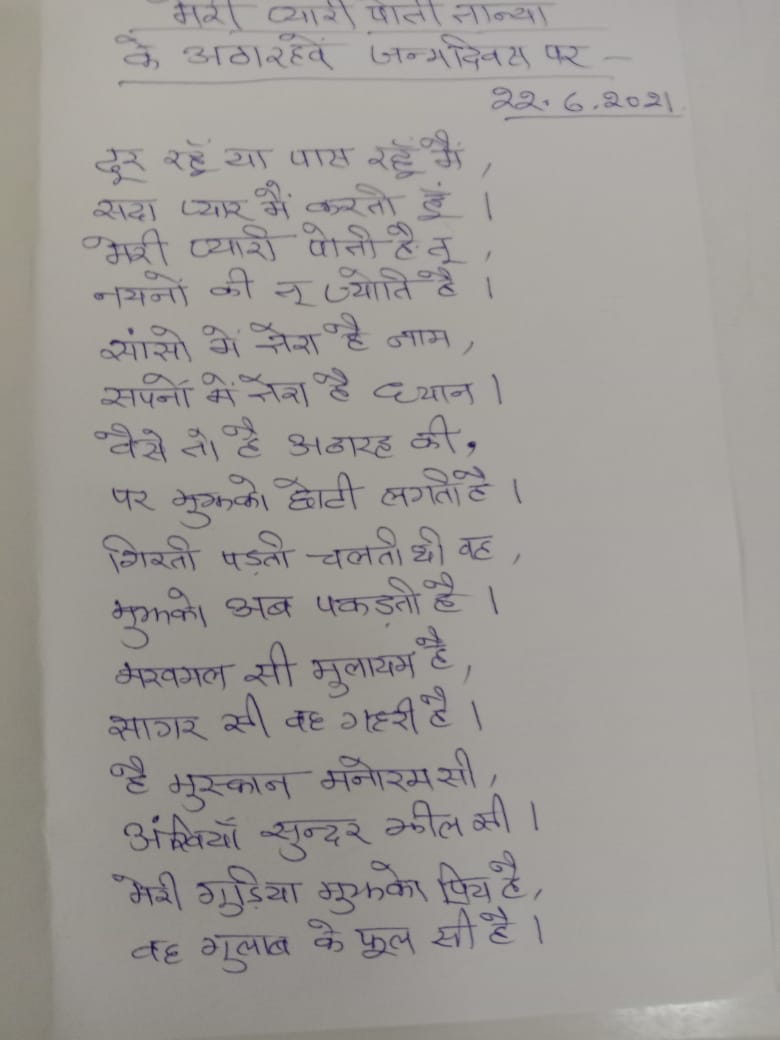 मेरी प्यारी पोती तान्या
के अठारहवें जन्मदिवस पर –
22.6.2021.
दूर रहूँ या पास रहूँ मैं,
सदा प्यार मैं करती हूं ।
मेरी प्यारी पोती है तू,
नयनों की तू ज्योति है ।
सांसो में तेरा है नाम,
सपनों में तेरा है ध्यान ।
वैसे तो है अठारह की,
पर मुझको छोटी लगती है ।
गिरती पड़ती चलती थी वह,
मुझको अब पकड़ती है ।
मखमल सी मुलायम है,
सागर सी वह गहरी है ।
है मुस्कान मनोरम सी,
अंखियाँ सुन्दर झील सी ।
मेरी गुड़िया मुझको प्रिय है,
वह गुलाब के फूल सी है ।